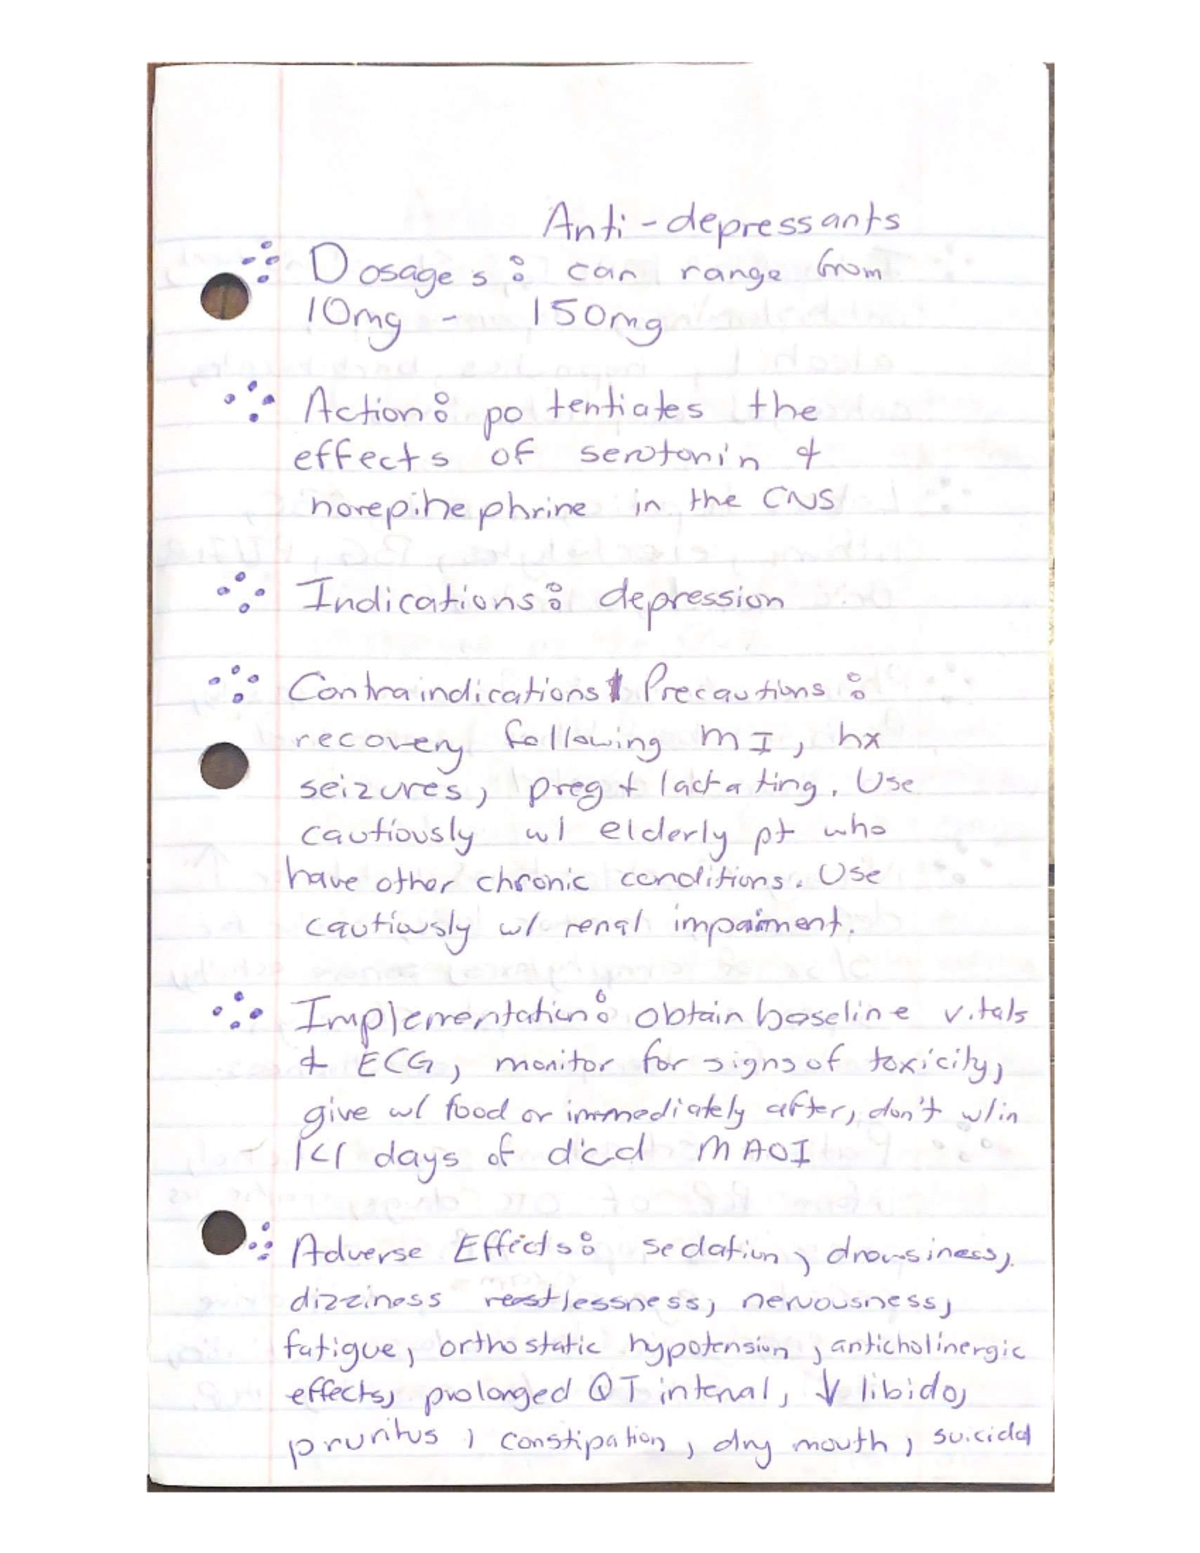 Anti-depressants
Dosages: can range from
10mg - 150mg
Action: potentiates the
effects of serotonin &
norepinephrine in the CNS
Indications: depression
Contraindications Precautions:
recovery following MI, hx
seizures, preg + lactating. Use
cautiously w/ elderly pt who
have other chronic conditions. Use
cautiously w/ renal impairment.
Implementation: obtain baseline vitals
& ECG, monitor for signs of toxicity,
give w/ food or immediately after, don't w/in
14 days of d'cd MAOI
Adverse Effects: sedation, drowsiness,
dizziness restlessness, nervousness,
fatigue, orthostatic hypotension, anticholinergic
effects, prolonged QT interval, ↓ libido,
pruritus, constipation, dry mouth, suicidal